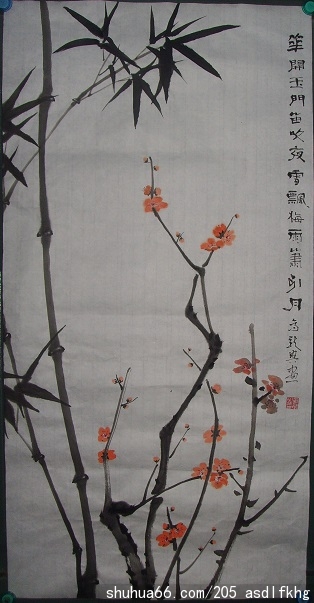 華開玉門笛吹夜雪飄梅雨簫引月
畫
shuhua66.com/205 asdlfkhg